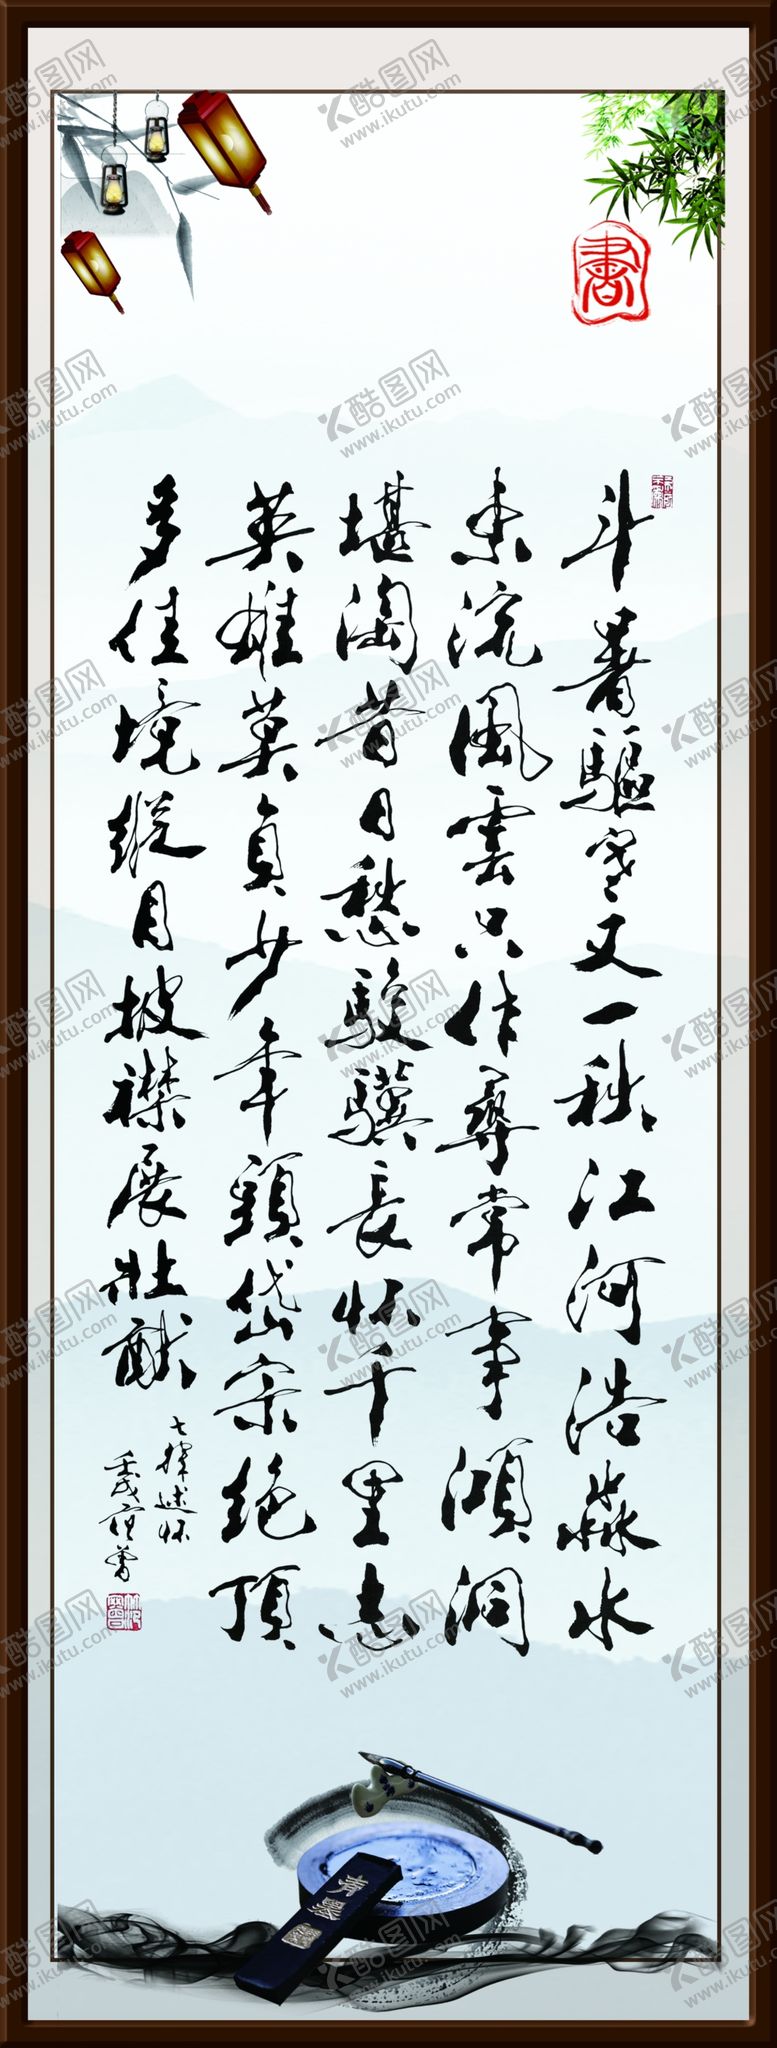 書
斗暑驅寒又一秋江河浩淼水
東流風雲只作尋常事澒洞
堪淘昔日愁駿驥長怀千里志
英雄莫負少年頭岱宗绝頂
多佳境縱目披襟展壯猷
七律述怀
壬戌范曾
青墨
酷图网
www.ikutu.com